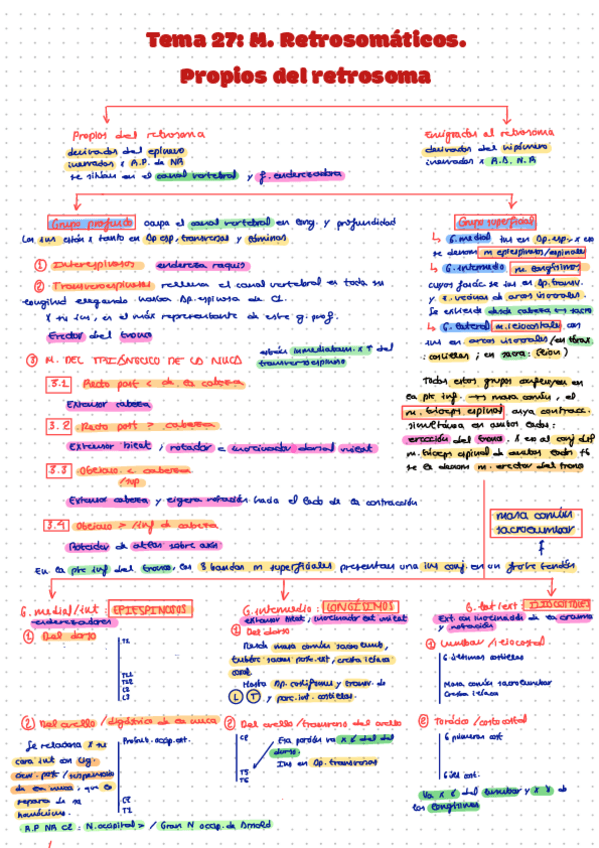 Tema 27: M. Retrosomáticos.
Propios del retrosoma
Propios del retrosoma
derivados del epímero
inervados x R.P. de NR
se sitúan en el canal vertebral y f. enderezadora
Emigrados al retrosoma
derivados del hipómero
inervados x R.A. N.R
Grupo profundo ocupa el canal vertebral en long. y profundidad
Los ins están x tanto en Ap esp, transversas y láminas
① Interespinosos endereza raquis
② Transversoespinoso rellena el canal vertebral en toda su
longitud llegando hasta Ap. espinosa de C2.
X su ins, es el más representante de este g. prof.
Erector del tronco
③ M. DEL TRIÁNGULO DE LA NUCA están inmediatam. x ↑ del
transversoespinoso
3.1 Recto post < de la cabeza
Extensor cabeza
3.2 Recto post > cabeza
Extensor bilat, rotador e inclinador dorsal unilat
3.3 Oblicuo < cabeza
/sup
Extensor cabeza y ligera rotación hacia el lado de la contracción
3.4 Oblicuo > /inf de cabeza
Rotador de atlas sobre axis
Grupo superficial
↳ G. medial ins en Ap. esp., x eso
se denom m epiespinosos/espinales
↳ G. intermedio m. longísimos
cuyos fascíc se ins en Ap. transv.
y x. vecinas de arcos viscerales.
Se extiende desde cabeza → sacro
↳ G. lateral m. iliocostales con
ins en arcos viscerales (en tórax:
costillas; en sacro: ilion)
Todos estos grupos confluyen en
la pte inf. → masa común, el
m. bíceps espinal cuya contracc.
simultánea en ambos lados:
erección del tronco. X eso al conj del
m. bíceps espinal de ambos lados tb
se le denom m. erector del tronco
masa común
sacrolumbar
En la pte inf del tronco, las 3 bandas m superficiales presentan una ins conj. en un fuerte tendón
G. medial/int: EPIESPINOSOS
enderezadores
① Del dorso
T2
T11
T12
L2
L3
② Del cuello / digástrico de la nuca
Se relaciona x su
cara int con Lig.
cerv. post / suspensorio
de la nuca, que lo
separa de su
homónimo.
Protub. occip. ext.
C7
T1
R.P NR C2: N. occipital > / Gran N occip. de Arnold
G. intermedio: LONGÍSIMOS
extensor bilat, inclinador lat unilat
① Del dorso
Desde masa común sacro lumb,
tubérc sacros poste. ext, cresta ilíaca
Hasta Ap. costiformes y transv. de
L T y parc. inf. costillas.
② Del cuello / transverso del cuello
C2
T5
T6
Esa porción va x ↑ del del
dorso.
Ins en Ap. transversas
G. lat/ext: ILIOCOSTALES
Ext con inclinación de la columna
y rotación
① Lumbar / iliocostal
6 últimas costillas
Masa común sacrolumbar
Cresta ilíaca
② Torácico / costocostal
6 primeras cost
6 últ cost.
Va x ↑ del lumbar y x fuera de
los longísimos